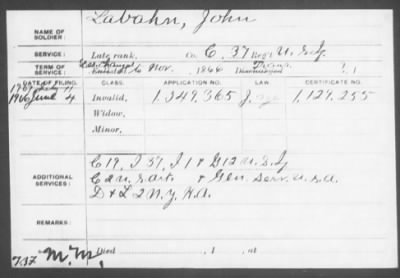 NAME OF SOLDIER: Labahn, John
SERVICE: Late rank, Co. C, 37 Reg't U.S. Inf
TERM OF SERVICE: Enlisted Nov. , 1866 Discharged , 1
DATE OF FILING. CLASS. APPLICATION NO. LAW. CERTIFICATE NO.
1906 June 4 Invalid, 1,349,365 1,129,255
Widow,
Minor,
C 19, I 37, I 1 & G 12 U.S. Inf
ADDITIONAL SERVICES: C 2 U.S. Art. & Gen. Serv. U.S.A.
D & L 2 N.Y. H.A.
REMARKS:
Died , 1 , at
737 M.M.